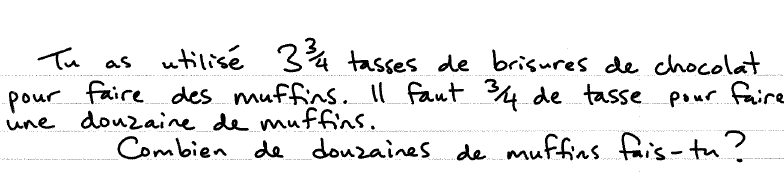 Tu as utilisé 3 3/4 tasses de brisures de chocolat
pour faire des muffins. Il faut 3/4 de tasse pour faire
une douzaine de muffins.
Combien de douzaines de muffins fais-tu?